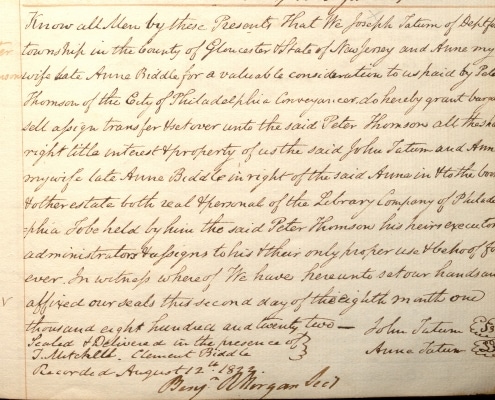 Know all Men by these Presents That We Joseph Tatum of Deptfo
township in the County of Gloucester & State of New Jersey and Anne my
wife late Anne Biddle for a valuable consideration to us paid by Pete
Thomson of the City of Philadelphia Conveyancer, do hereby grant barga
sell assign transfer & set over unto the said Peter Thomson all the sha
right title interest & property of us the said John Tatum and Ann
my wife late Anne Biddle in right of the said Anna in & to the boo
& other estate both real & personal of the Library Company of Philade
phia To be held by him the said Peter Thomson his heirs executor
administrators & assigns to his & their only proper use & behoof for
ever. In witness whereof We have hereunto set our hands an
affixed our seals this second day of the eighth month one
thousand eight hundred and twenty two — John Tatum
Sealed & Delivered in the presence of Anna Tatum
T. Mitchell. Clement Biddle
Recorded August 12th 1822.
Benjn R Morgan Secy